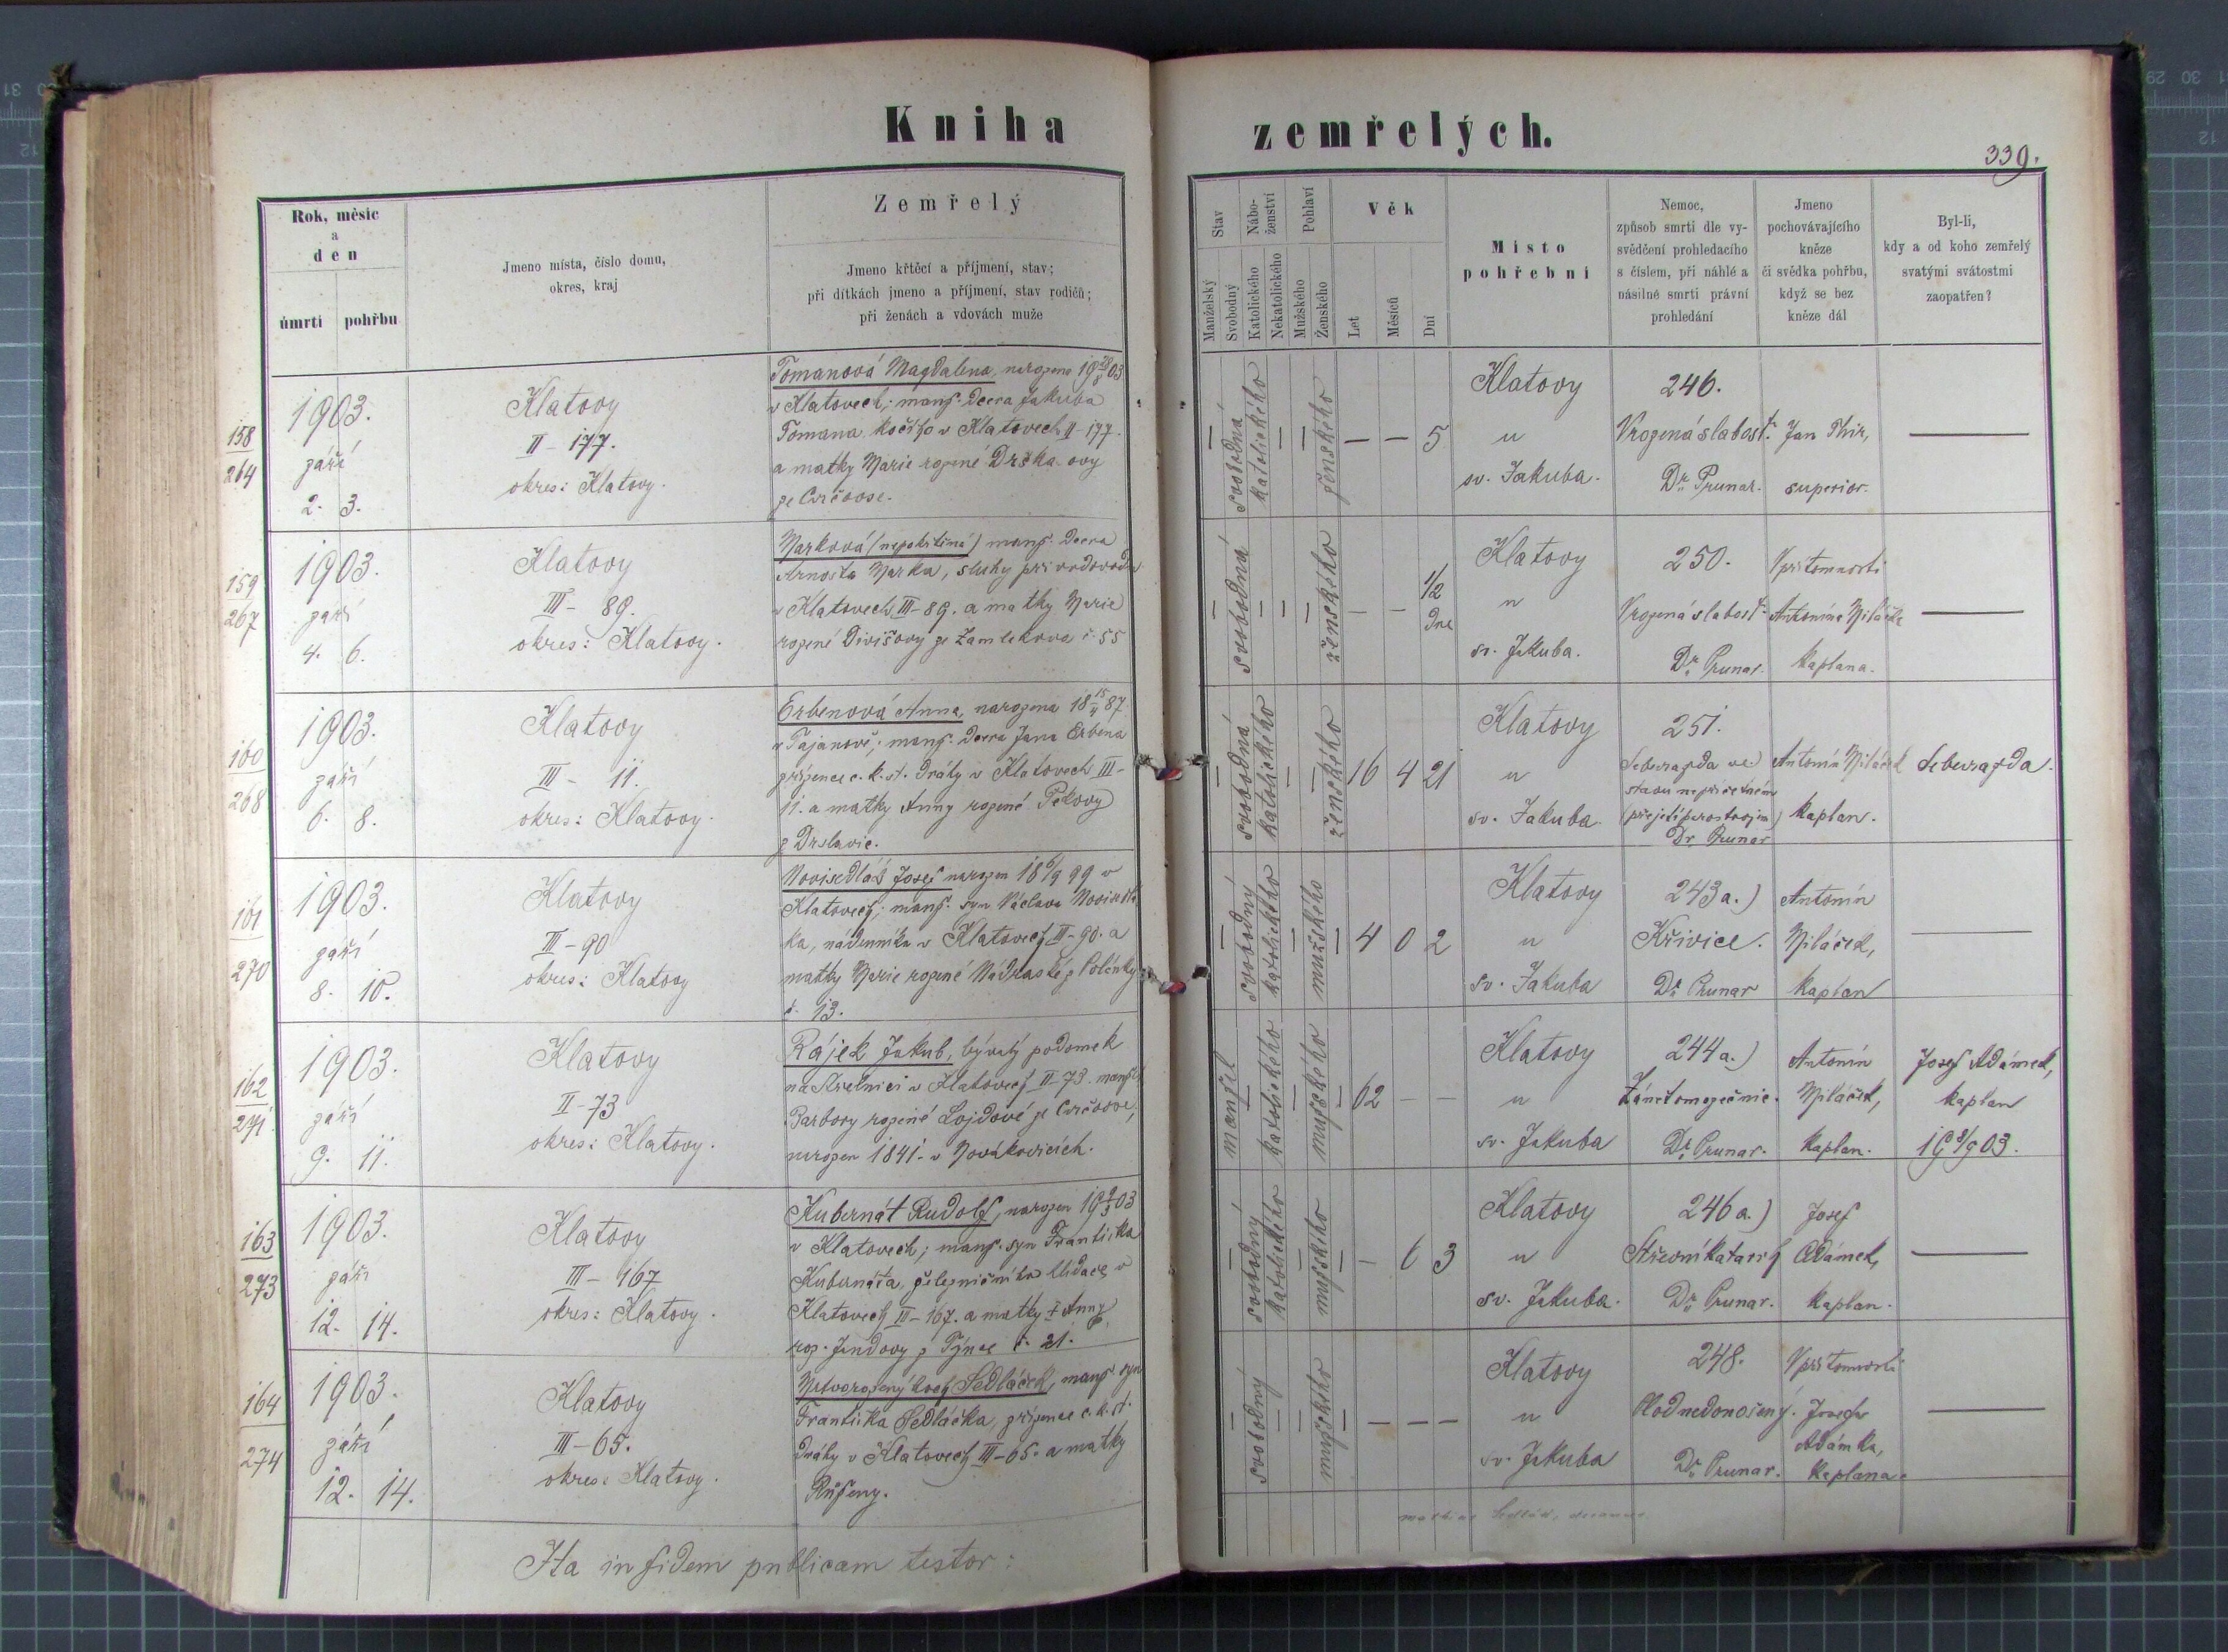 Kniha zemřelých.
339.
Rok, měsíc
a
den
úmrtí pohřbu
Jmeno místa, číslo domu,
okres, kraj
Zemřelý
Jmeno křtěcí a příjmení, stav;
při dítkách jmeno a příjmení, stav rodičů;
při ženách a vdovách muže
Stav
Manželský
Svobodný
Nábo-
ženství
Katolického
Nekatolického
Pohlaví
Mužského
Ženského
Věk
Let
Měsíců
Dní
Místo
pohřební
Nemoc,
způsob smrti dle vy-
svědčení prohledacího
s číslem, při náhlé a
násilné smrti právní
prohledání
Jmeno
pochovávajícího
kněze
či svědka pohřbu,
když se bez
kněze dál
Byl-li,
kdy a od koho zemřelý
svatými svátostmi
zaopatřen?
158
264
1903.
září
2. 3.
Klatovy
II - 177.
okres: Klatovy.
Tomanová Magdalena, narozena 19 28/8 03
v Klatovech; manž. dcera Jakuba
Tomana kočího v Klatovech II-177.
a matky Marie rozené Drška-ovy
svobodná
katolického
ženského
— — 5
Klatovy
u
sv. Jakuba.
246.
Vrozená slabosť.
Dr. Prunar.
Jan Thir,
superior.
159
267
1903.
září
4. 6.
Klatovy
III - 89.
okres: Klatovy.
Marková (nepokřtěná) manž. dcera
Arnošta Marka, sluhy při vodovodu
v Klatovech III-89. a matky Marie
rozené Divišovy ze Žamlekova č. 55
svobodná
ženského
— — 1/2
dne
Klatovy
u
sv. Jakuba.
250.
Vrozená slabosť.
Dr. Prunar.
V přítomnosti
Antonína Miláčka
kaplana.
160
268
1903.
září
6. 8.
Klatovy
III - 11.
okres: Klatovy.
Erbenová Anna, narozena 18 15/4 87
v Tajanově; manž. dcera Jana Erbena
zřízence c. k. st. dráhy v Klatovech III-
11. a matky Anny rozené Pekovy
z Drslavic.
svobodná
katolického
ženského
16 4 21
Klatovy
u
sv. Jakuba.
251.
Sebevražda ve
stavu nepříčetném
(přejetí parostrojem)
Dr. Prunar
Antonín Miláček
kaplan.
Sebevražda.
161
270
1903.
září
8. 10.
Klatovy
III - 90
okres: Klatovy
Josef narozen 18 6/9 99 v
Klatovech; manž. syn Václava
ka, nádenníka v Klatovech III-90. a
matky Marie rozené Nádraské z Polénky
č. 13.
svobodný
katolického
mužského
4 0 2
Klatovy
u
sv. Jakuba
243 a.)
Křivice.
Dr. Prunar
Antonín
Miláček,
kaplan
162
271
1903.
září
9. 11.
Klatovy
II - 73
okres: Klatovy.
Rájek Jakub, bývalý podomek
na Střelnici v Klatovech II-73. manžel
Barbory rozené Lojdové
narozen 1841. v Novákovicích.
manžel
katolického
mužského
62 — —
Klatovy
u
sv. Jakuba
244 a.)
Zánět omozečnic.
Dr. Prunar.
Antonín
Miláček,
kaplan.
Josef Adámek,
kaplan
19 8/9 03.
163
273
1903.
září
12. 14.
Klatovy
III - 167
okres: Klatovy.
Kubernát Rudolf, narozen 19 9/3 03
v Klatovech; manž. syn Františka
Kubernáta, železničního hlídače v
Klatovech III-167. a matky † Anny
roz. Jandovy z Týnce č. 21.
svobodný
katolického
mužského
— 6 3
Klatovy
u
sv. Jakuba.
246 a.)
Střevní katarrh
Dr. Prunar.
Josef
Adámek,
kaplan.
164
274
1903.
září
12. 14.
Klatovy
III - 65.
okres: Klatovy.
Mrtvorozený hoch Sedláček, manž. syn
Františka Sedláčka, zřízence c. k. st.
dráhy v Klatovech III-65. a matky
Růženy.
svobodný
mužského
— — —
Klatovy
u
sv. Jakuba
248.
Plod nedonošený.
Dr. Prunar.
V přítomnosti
Josefa
Adámka,
kaplana.
Ita in fidem publicam testor: